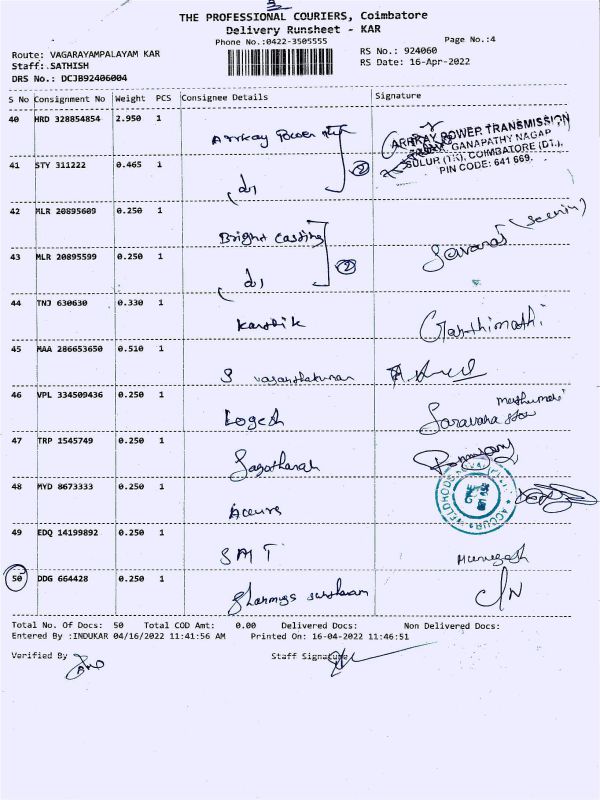 THE PROFESSIONAL COURIERS, Coimbatore
Delivery Runsheet - KAR
Phone No.:0422-3505555
Page No.:4
Route: VAGARAYAMPALAYAM KAR
RS No.: 924060
Staff:.SATHISH
RS Date: 16-Apr-2022
DRS No.: DCJB92406004
S No Consignment No Weight PCS Consignee Details Signature
40 HRD 328854854 2.950 1
ARRKAY POWER TRANSMISSION
GANAPATHY NAGAR
SULUR (TK), COIMBATORE (DT.),
PIN CODE: 641 669.
41 STY 311222 0.465 1 (2)
42 MLR 20895609 0.250 1
Bright Casting
43 MLR 20895599 0.250 1 (2)
44 TNJ 630630 0.330 1
Karthik Ganthimathi
45 MAA 286653650 0.510 1
S vasanthakumar
46 VPL 334509436 0.250 1
Logesh Saravana
47 TRP 1545749 0.250 1
48 MYD 8673333 0.250 1
Accura
49 EDQ 14199892 0.250 1
SMT Murugesh
50 DDG 664428 0.250 1
Total No. Of Docs: 50 Total COD Amt: 0.00 Delivered Docs: Non Delivered Docs:
Entered By :INDUKAR 04/16/2022 11:41:56 AM Printed On: 16-04-2022 11:46:51
Verified By Staff Signature